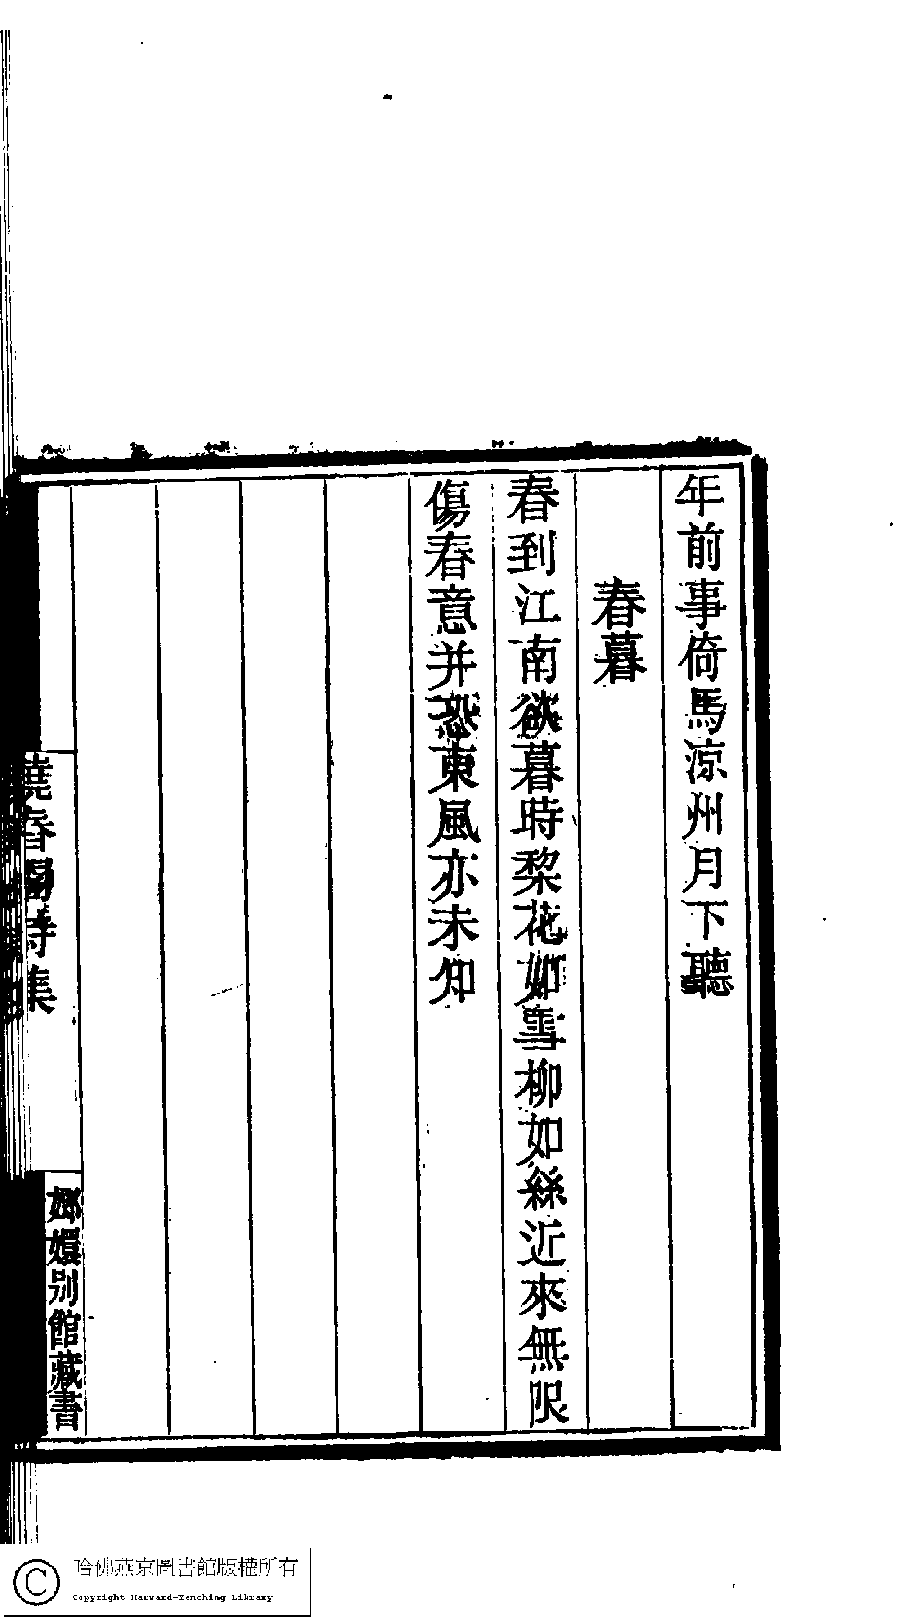 年前事倚馬涼州月下聽
春暮
春到江南欲暮時棃花如雪柳如絲近來無限
傷春意并恐東風亦未知
春閣詩集
嫏嬛別館藏書
哈佛燕京圖書館版權所有
Copyright Harvard-Yenching Library